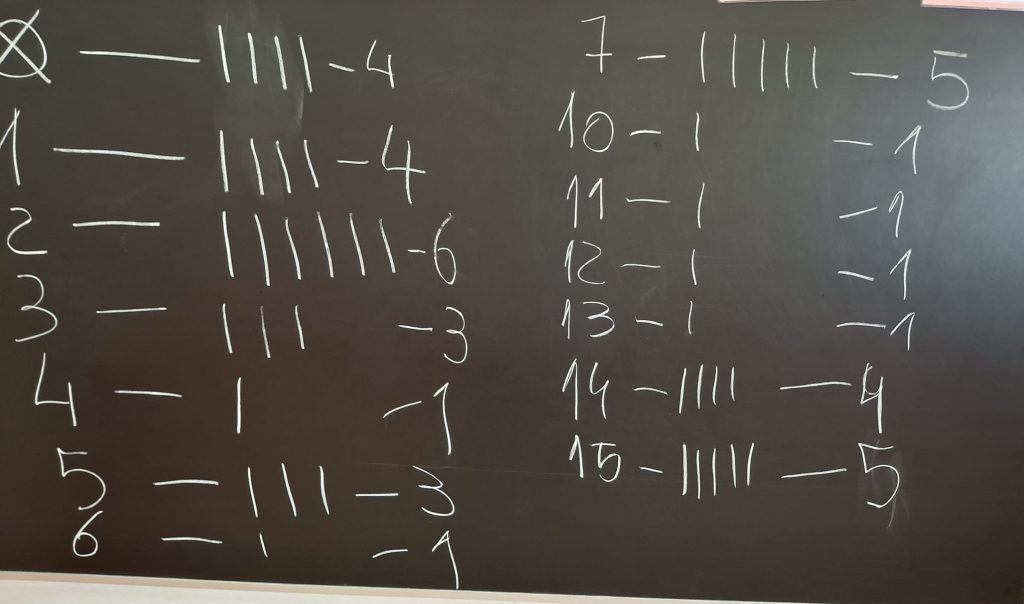 Ø — |||| - 4
1 — |||| - 4
2 — |||||| - 6
3 — ||| - 3
4 — | - 1
5 — ||| - 3
6 — | - 1
7 - ||||| - 5
10 - | - 1
11 - | - 1
12 - | - 1
13 - | - 1
14 - |||| - 4
15 - ||||| - 5